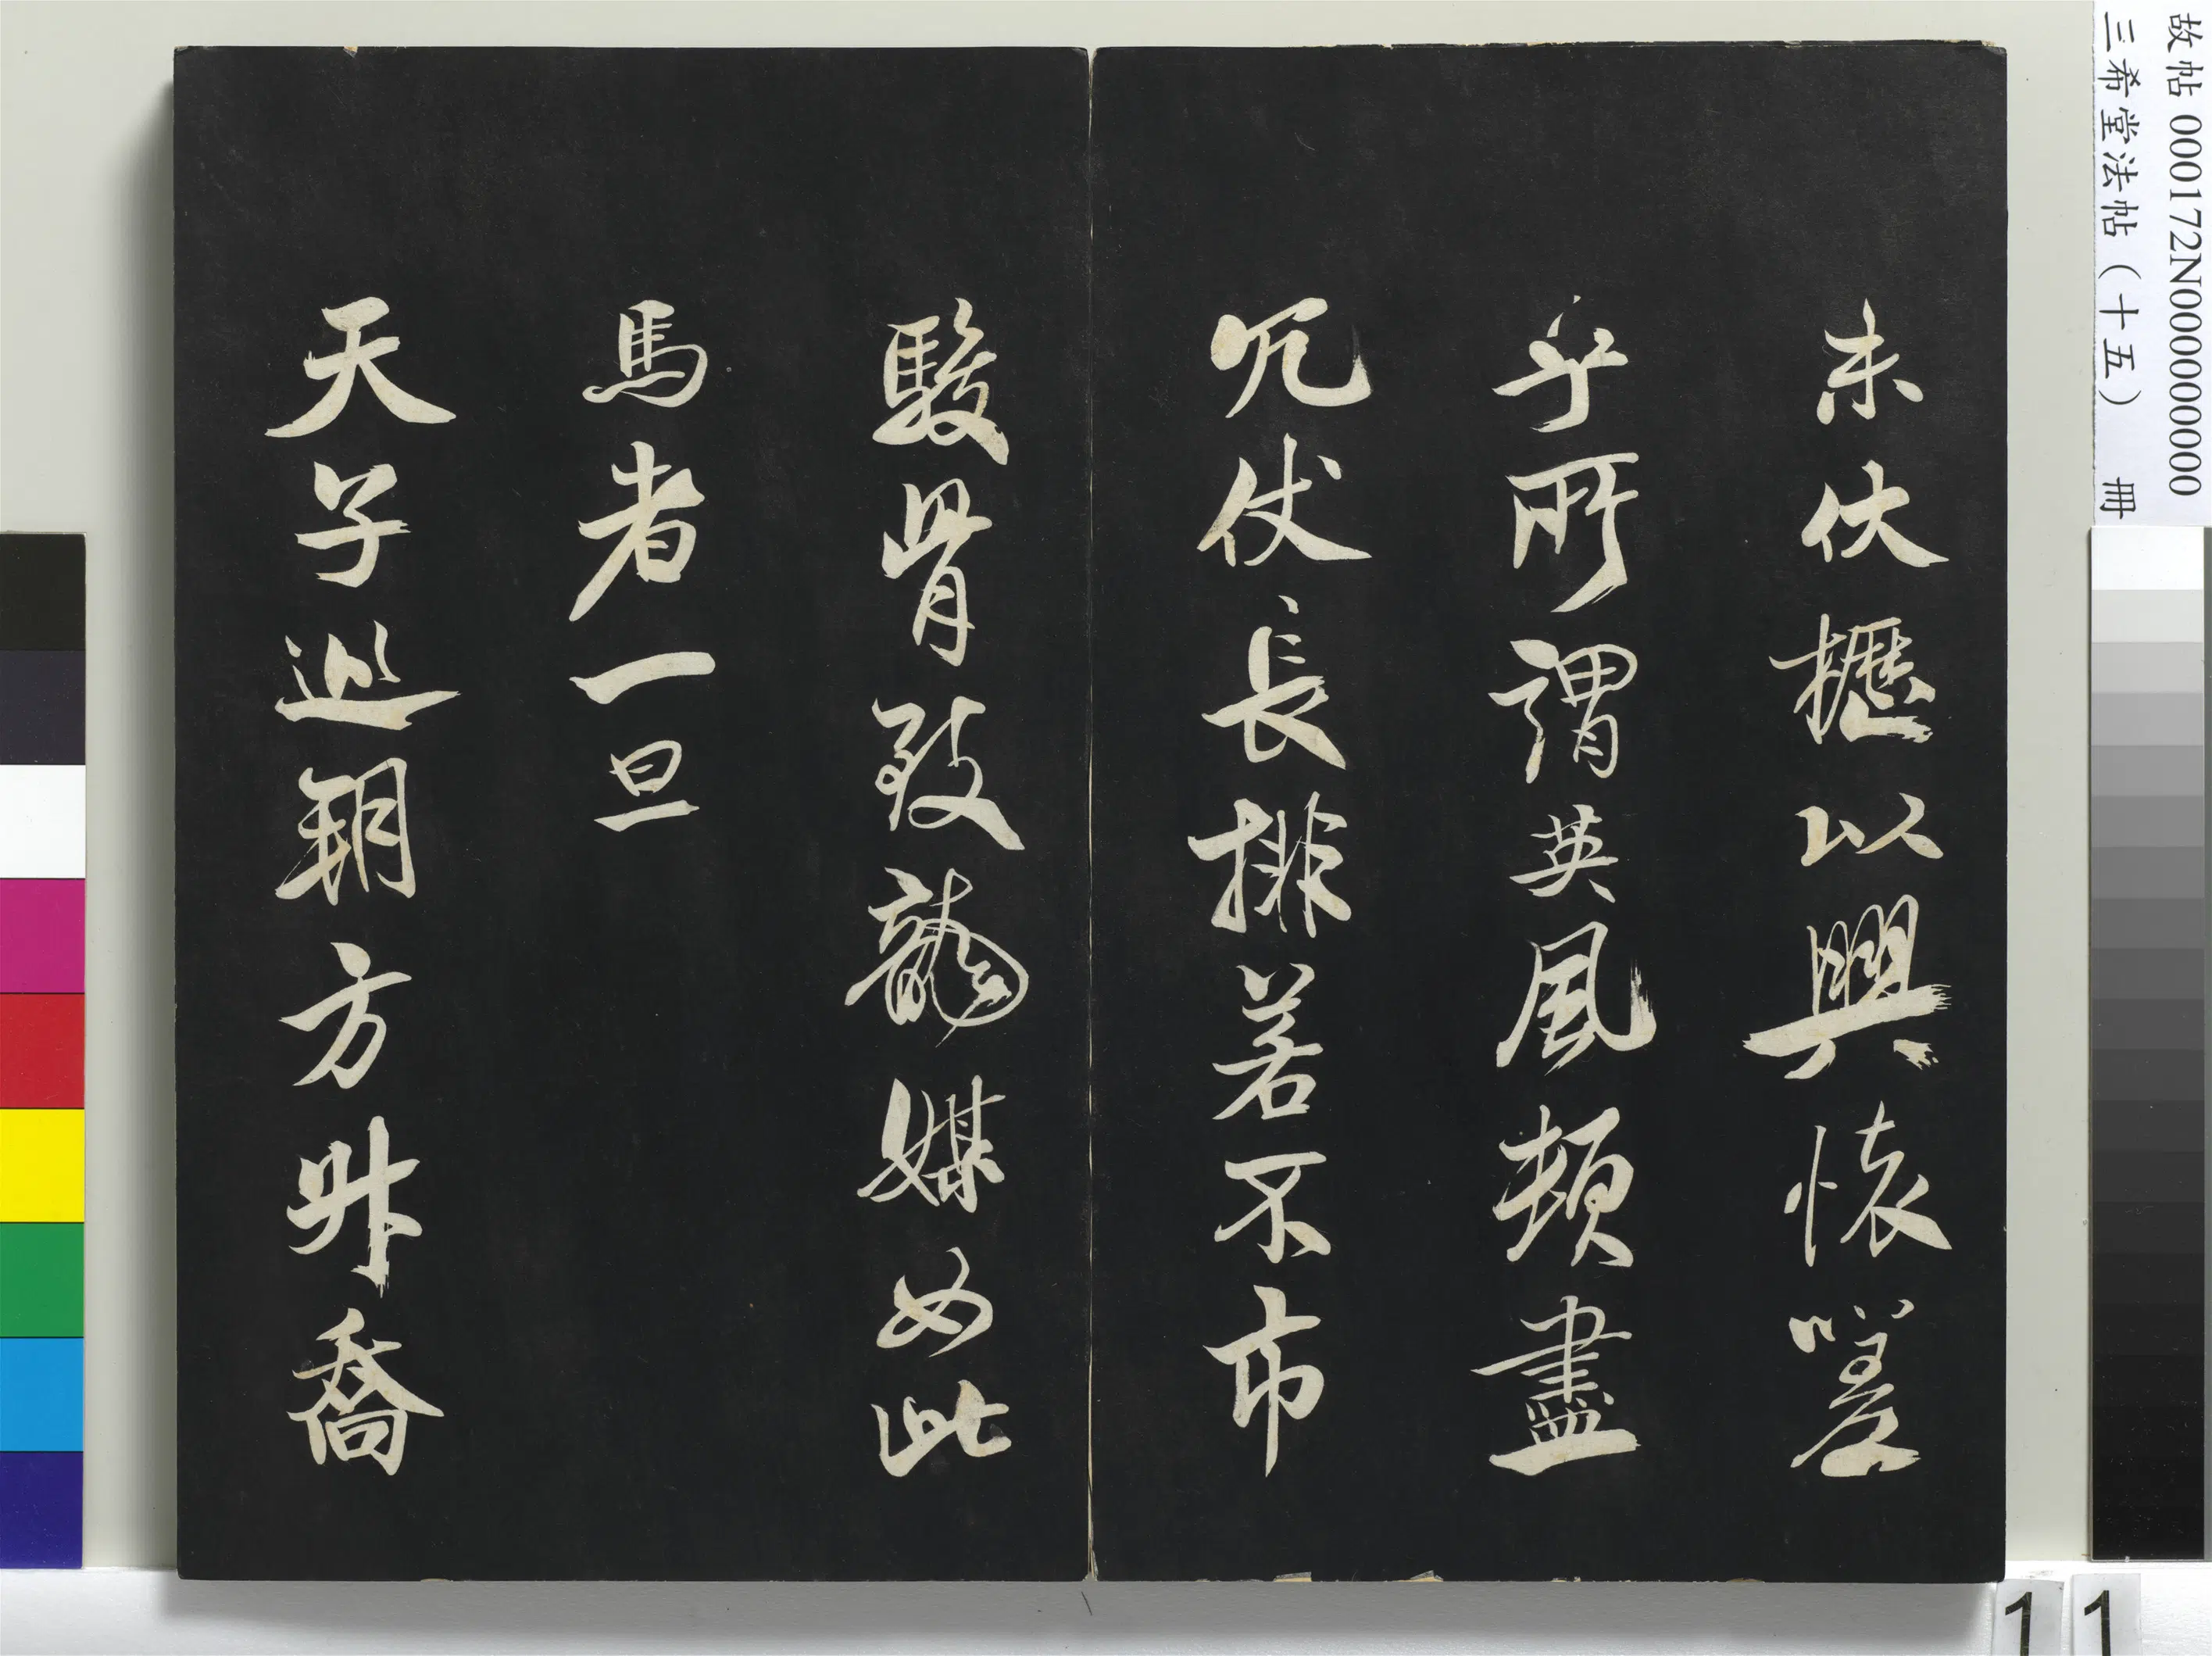 故帖 000172N000000000
三希堂法帖（十五） 冊
未伏櫪以興懷嗟
乎所謂英風頓盡
冗仗長排若不市
駿骨致龍媒如此
馬者一旦
天子巡朔方升喬
11